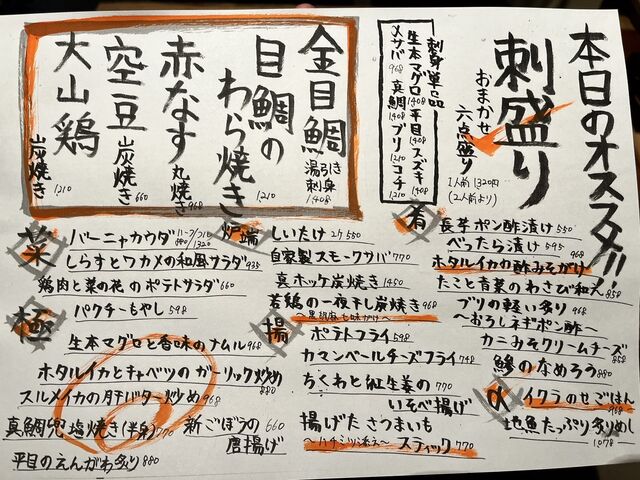 本日のオススメ!!
刺盛り
おまかせ
六点盛り
1人前 1320円
(2人前より)
刺身単品
生本マグロ 1408 平目 1408 スズキ 1408
〆サバ 968 真鯛 1408 ブリ 1210 コチ 1210
金目鯛
湯引き
刺身
1408
目鯛の
わら焼き
1210
赤なす
丸焼き
968
空豆
炭焼き
660
大山鶏
炭焼き
1210
肴
長芋ポン酢漬け 550
べったら漬け 595
ホタルイカの酢みそがけ 968
たこと青菜のわさび和え 858
ブリの軽い炙り 968
〜おろしネギポン酢〜
カニみそクリームチーズ 858
鯵のなめろう 880
〆
イクラのせごはん 968
地魚たっぷり炙りめし 1078
炉端
しいたけ 2ケ 550
自家製スモークサバ 770
真ホッケ炭焼き 1450
若鶏の一夜干し炭焼き 968
〜黒胡麻七味がけ〜
揚
ポテトフライ 598
カマンベールチーズフライ 748
ちくわと紅生姜の 770
いそべ揚げ
揚げたさつまいも
〜ハチミツ添え〜 スティック 770
菜
バーニャカウダ
しらすとワカメの和風サラダ 935
鶏肉と菜の花のポテトサラダ 660
パクチーもやし 598
極
生本マグロと香味のナムル 968
ホタルイカとキャベツのガーリック炒め 880
スルメイカの肝バター炒め 968
真鯛兜塩焼き(半身) 770
新ごぼうの 660
唐揚げ
平目のえんがわ炙り 880